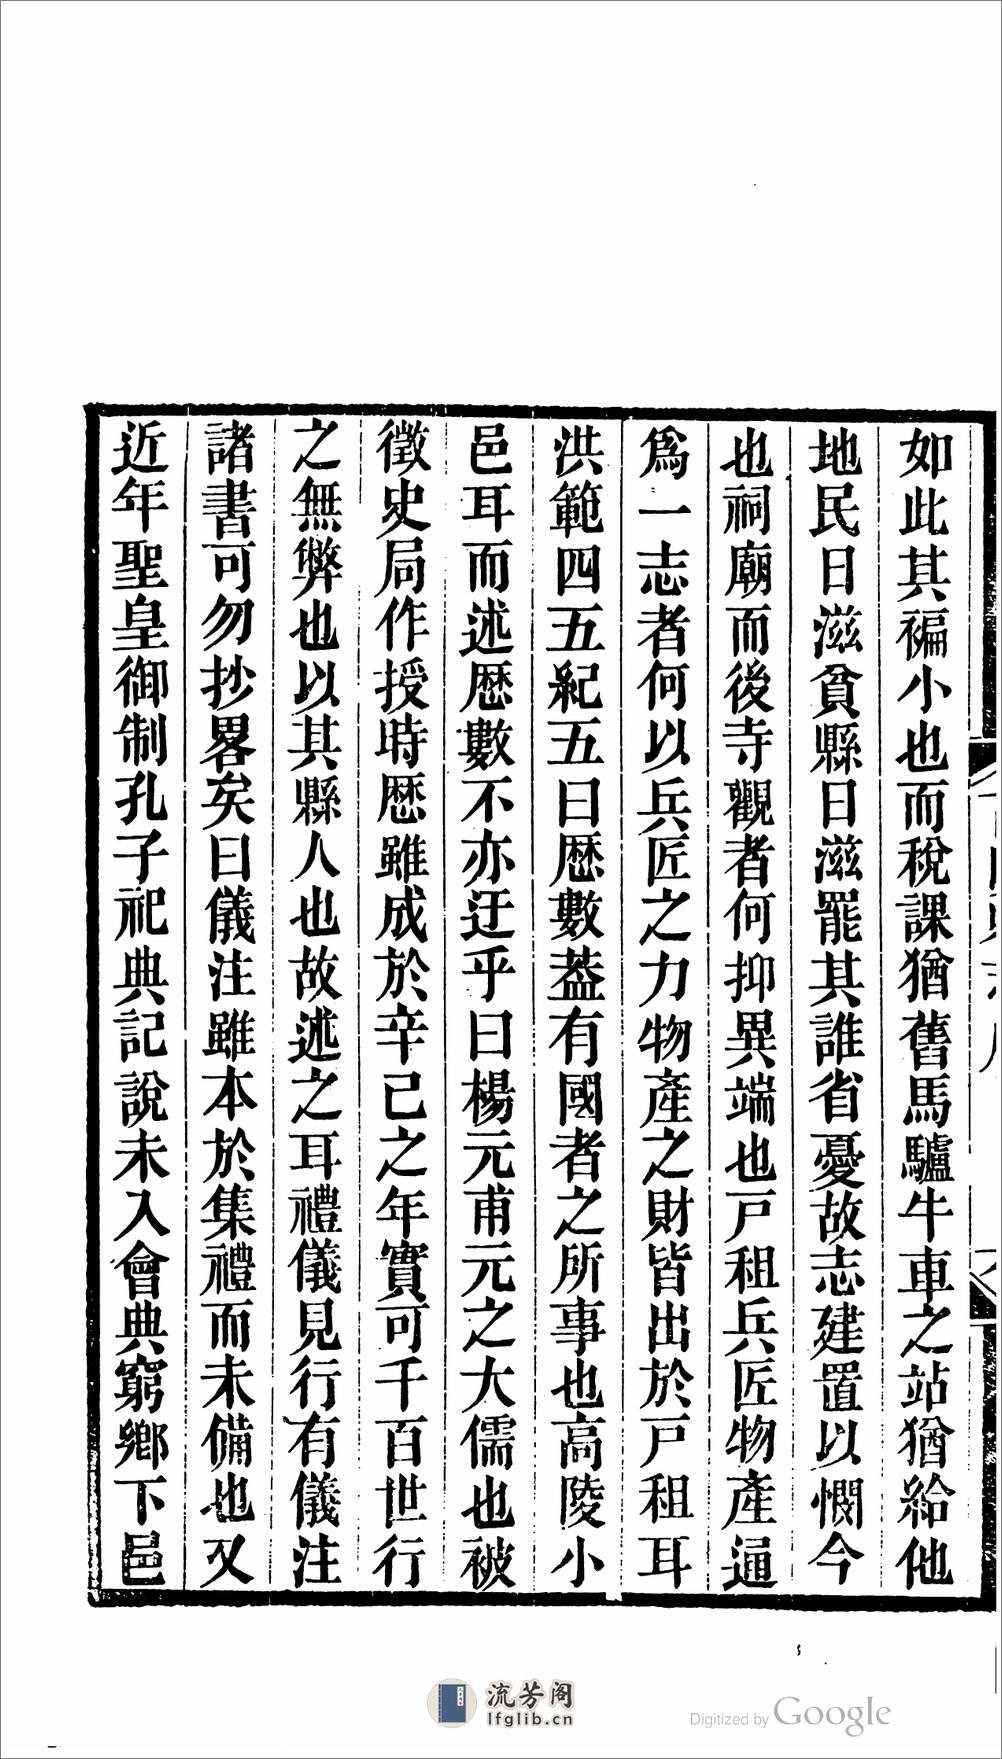 如此其褊小也而稅課猶舊馬驢牛車之站猶給他
地民日滋貧縣日滋罷其誰省憂故志建置以憫今
也祠廟而後寺觀者何抑異端也戸租兵匠物產通
爲一志者何以兵匠之力物產之財皆出於戸租耳
洪範四五紀五曰歴數葢有國者之所事也高陵小
邑耳而述歴數不亦迂乎曰楊元甫元之大儒也被
徵史局作授時歴雖成於辛已之年實可千百世行
之無弊也以其縣人也故述之耳禮儀見行有儀注
諸書可勿抄畧矣曰儀注雖本於集禮而未備也又
近年聖皇御制孔子祀典記說未入會典窮鄉下邑
流芳阁
lfglib.cn
Digitized by Google